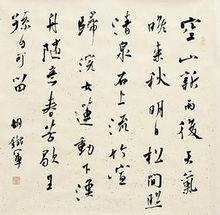 空山新雨後天氣
晚来秋明月松間照
清泉石上流竹喧
歸浣女蓮動下漁
舟随意春芳歇王
孫自可留